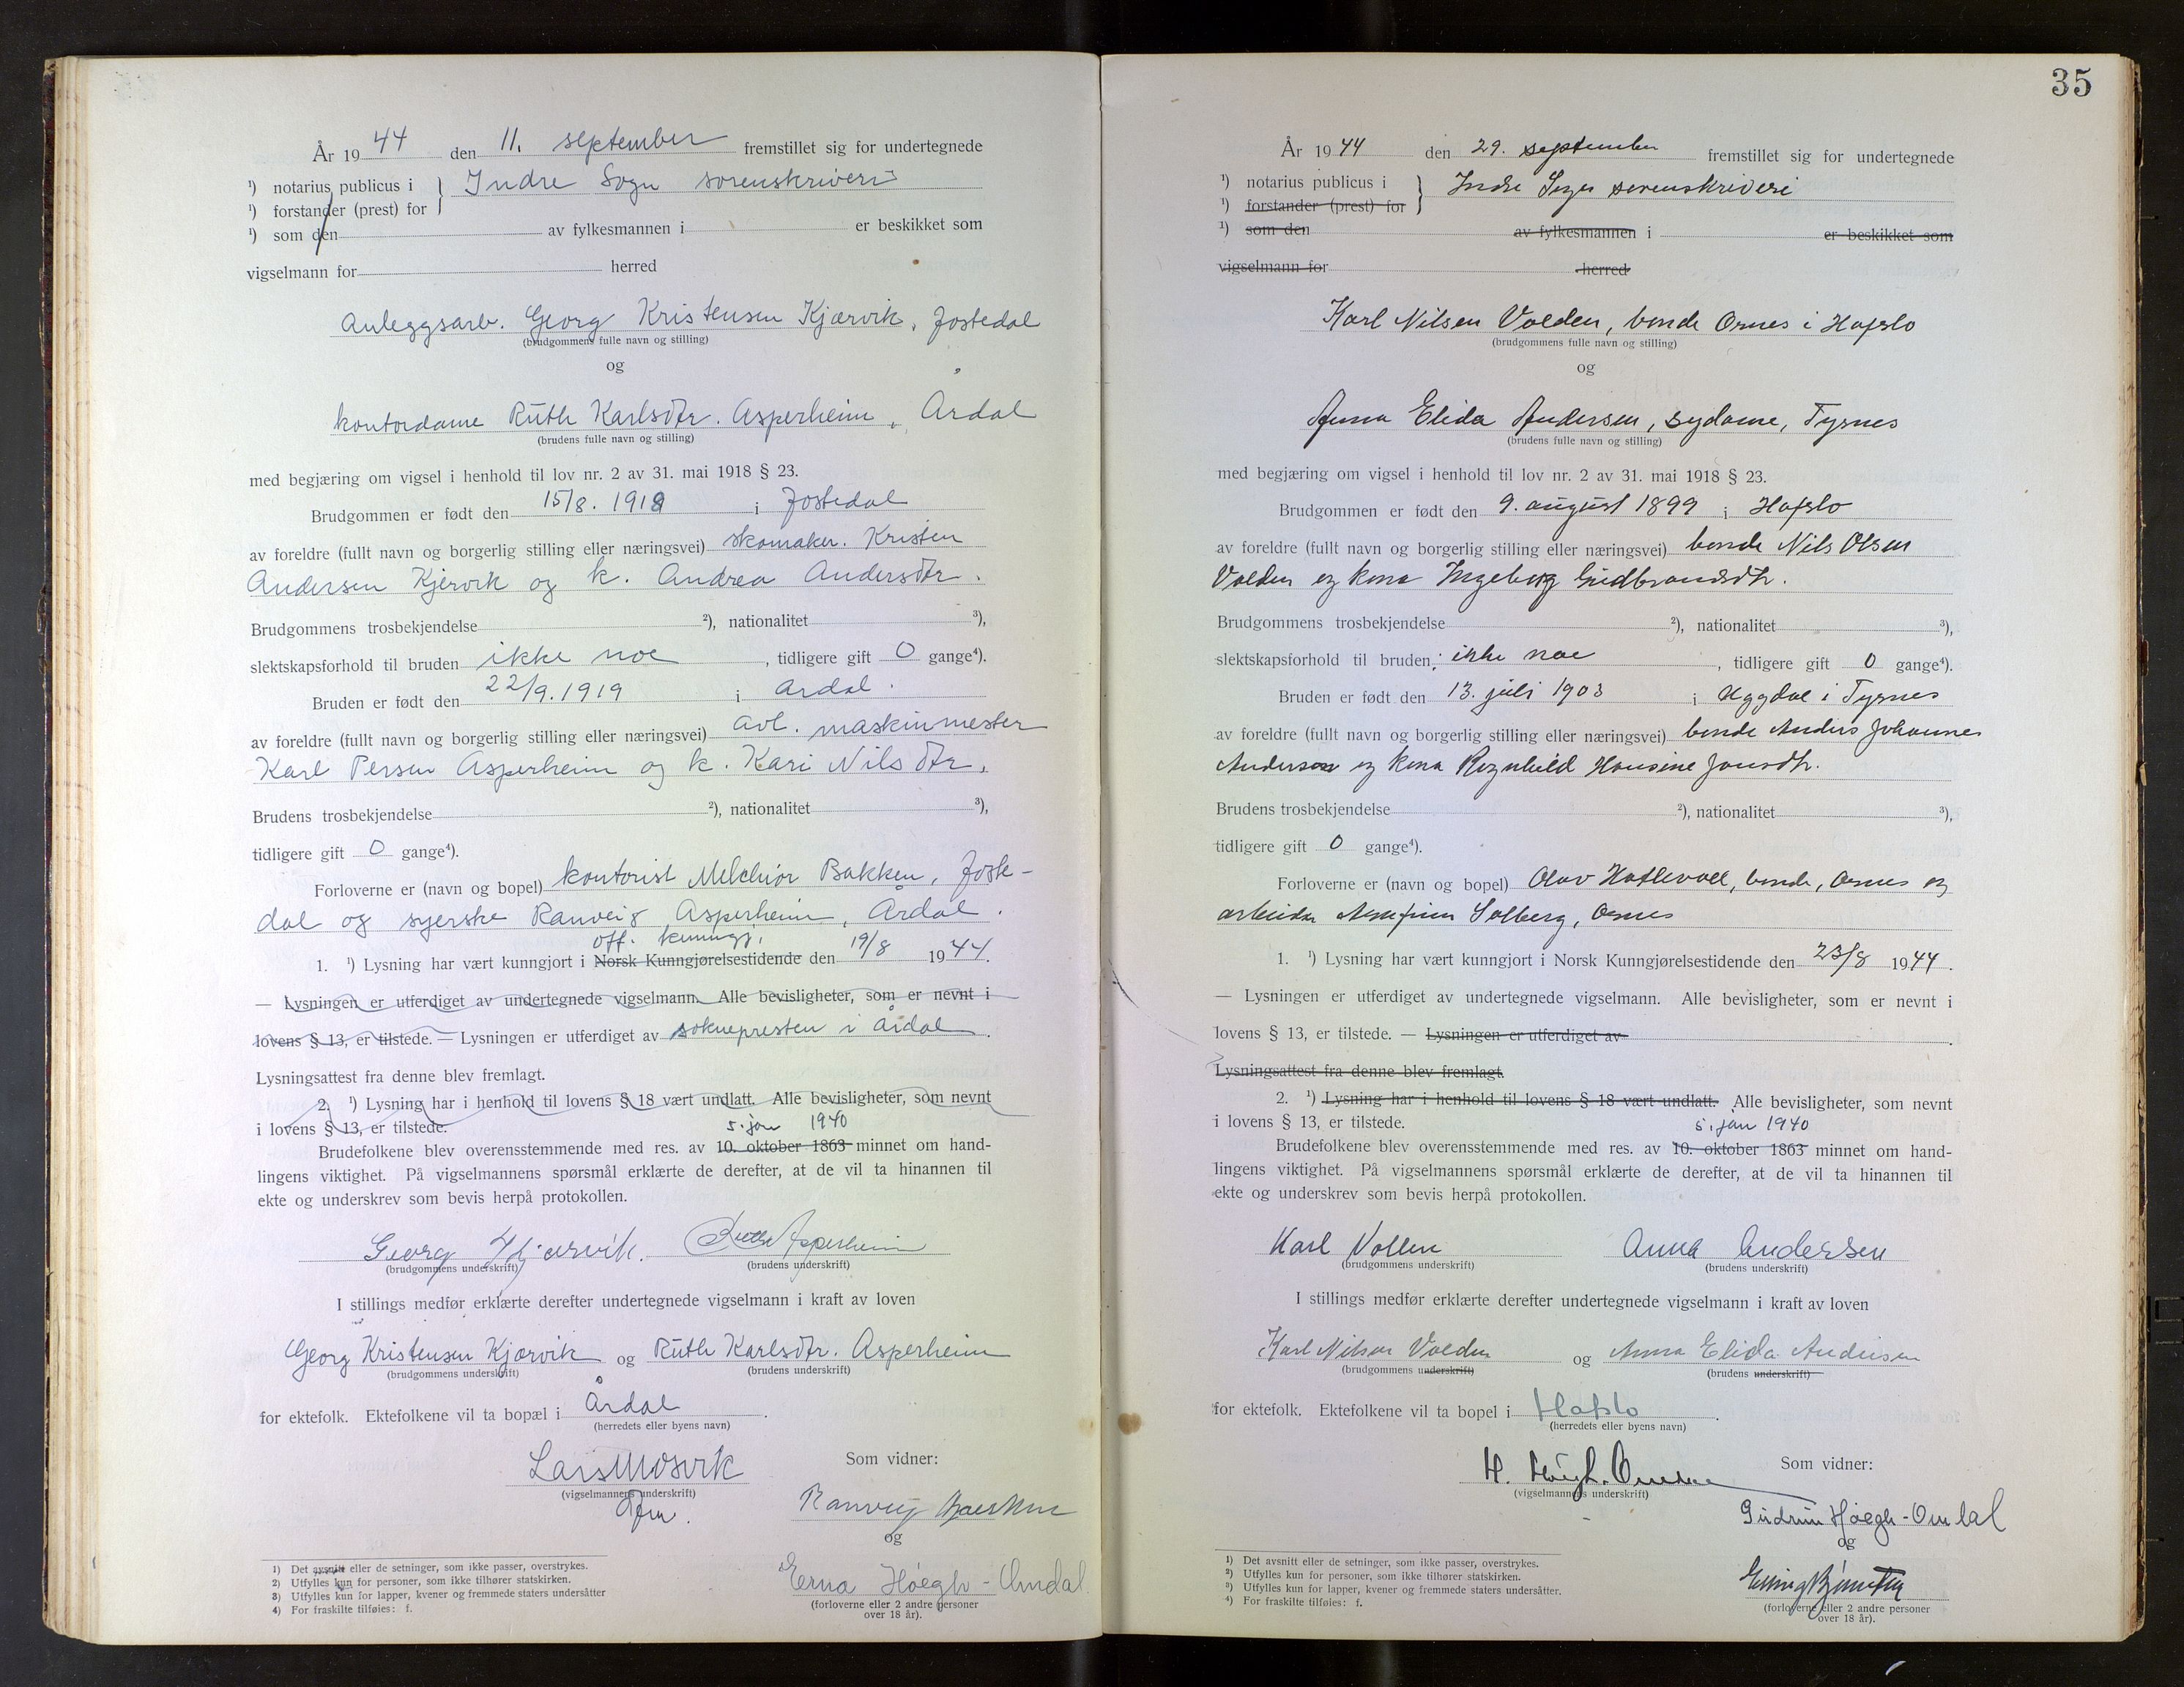 År 1944 den 11. september fremstillet sig for undertegnede
¹) notarius publicus i } Indre Sogn sorenskriveri
¹) forstander (prest) for
¹) som den av fylkesmannen i er beskikket som
vigselmann for herred
Anleggsarb. Georg Kristensen Kjærvik, Jostedal
(brudgommens fulle navn og stilling)
og
kontordame Ruth Karlsdtr. Asperheim, Årdal
(brudens fulle navn og stilling)
med begjæring om vigsel i henhold til lov nr. 2 av 31. mai 1918 § 23.
Brudgommen er født den 15/8. 1919 i Jostedal
av foreldre (fullt navn og borgerlig stilling eller næringsvei) skomaker. Kristen
Andersen Kjervik og k. Andrea Andersdtr.
Brudgommens trosbekjendelse ²), nationalitet ³),
slektskapsforhold til bruden ikke noe , tidligere gift 0 gange⁴).
Bruden er født den 22/9. 1919 i Årdal.
av foreldre (fullt navn og borgerlig stilling eller næringsvei) avl. maskinmester
Karl Persen Asperheim og k. Kari Nilsdtr.
Brudens trosbekjendelse ²), nationalitet ³),
tidligere gift 0 gange⁴).
Forloverne er (navn og bopel) kontorist Melchior Bakken, Joste-
dal og syerske Ranveig Asperheim, Årdal.
off. kunngj.
1. ¹) Lysning har vært kunngjort i Norsk Kunngjørelsestidende den 19/8 1944.
— Lysningen er utferdiget av undertegnede vigselmann. Alle bevisligheter, som er nevnt i
lovens § 13, er tilstede. — Lysningen er utferdiget av soknepresten i Årdal.
Lysningsattest fra denne blev fremlagt.
2. ¹) Lysning har i henhold til lovens § 18 vært undlatt. Alle bevisligheter, som nevnt
i lovens § 13, er tilstede.
5. jan 1940
Brudefolkene blev overensstemmende med res. av 10. oktober 1863 minnet om hand-
lingens viktighet. På vigselmannens spørsmål erklærte de derefter, at de vil ta hinannen til
ekte og underskrev som bevis herpå protokollen.
Georg Kjærvik. Ruth Asperheim
(brudgommens underskrift) (brudens underskrift)
I stillings medfør erklærte derefter undertegnede vigselmann i kraft av loven
Georg Kristensen Kjærvik og Ruth Karlsdtr. Asperheim
(brudgommens underskrift) (brudens underskrift)
for ektefolk. Ektefolkene vil ta bopæl i Årdal.
(herredets eller byens navn)
Lars Mosvik Som vidner:
(vigselmannens underskrift)
Ranveig
og
Erna Höegh-Omdal
(forloverne eller 2 andre personer
over 18 år).
1) Det avsnitt eller de setninger, som ikke passer, overstrykes.
2) Utfylles kun for personer, som ikke tilhører statskirken.
3) Utfylles kun for lapper, kvener og fremmede staters undersåtter
4) For fraskilte tilføies: f.
35
År 1944 den 29. september fremstillet sig for undertegnede
¹) notarius publicus i } Indre Sogn sorenskriveri
¹) forstander (prest) for
¹) som den av fylkesmannen i er beskikket som
vigselmann for herred
Karl Nilsen Volden, bonde Ornes i Hafslo
(brudgommens fulle navn og stilling)
og
Anna Elida Andersen, sydame, Tysnes
(brudens fulle navn og stilling)
med begjæring om vigsel i henhold til lov nr. 2 av 31. mai 1918 § 23.
Brudgommen er født den 9. august 1899 i Hafslo
av foreldre (fullt navn og borgerlig stilling eller næringsvei) bonde Nils Olsen
Volden og kona Ingeborg Gudbrandsdtr.
Brudgommens trosbekjendelse ²), nationalitet ³),
slektskapsforhold til bruden: ikke noe , tidligere gift 0 gange⁴).
Bruden er født den 13. juli 1903 i Uggdal i Tysnes
av foreldre (fullt navn og borgerlig stilling eller næringsvei) bonde Anders Johannes
Andersen og kona Ragnhild Hansine Jonsdtr.
Brudens trosbekjendelse ²), nationalitet ³),
tidligere gift 0 gange⁴).
Forloverne er (navn og bopel) Olav Hatlevoll, bonde, Ornes og
arbeider Solberg, Ornes
1. ¹) Lysning har vært kunngjort i Norsk Kunngjørelsestidende den 23/8 1944.
— Lysningen er utferdiget av undertegnede vigselmann. Alle bevisligheter, som er nevnt i
lovens § 13, er tilstede. — Lysningen er utferdiget av .
Lysningsattest fra denne blev fremlagt.
2. ¹) Lysning har i henhold til lovens § 18 vært undlatt. Alle bevisligheter, som nevnt
i lovens § 13, er tilstede.
5. jan 1940
Brudefolkene blev overensstemmende med res. av 10. oktober 1863 minnet om hand-
lingens viktighet. På vigselmannens spørsmål erklærte de derefter, at de vil ta hinannen til
ekte og underskrev som bevis herpå protokollen.
Karl Vollen Anna Andersen
(brudgommens underskrift) (brudens underskrift)
I stillings medfør erklærte derefter undertegnede vigselmann i kraft av loven
Karl Nilsen Volden og Anna Elida Andersen
(brudgommens underskrift) (brudens underskrift)
for ektefolk. Ektefolkene vil ta bopel i Hafslo.
(herredets eller byens navn)
H. Høegh-Omdal Som vidner:
(vigselmannens underskrift)
Gudrun Høegh-Omdal
og
(forloverne eller 2 andre personer
over 18 år).
1) Det avsnitt eller de setninger, som ikke passer, overstrykes.
2) Utfylles kun for personer, som ikke tilhører statskirken.
3) Utfylles kun for lapper, kvener og fremmede staters undersåtter.
4) For fraskilte tilføies: f.